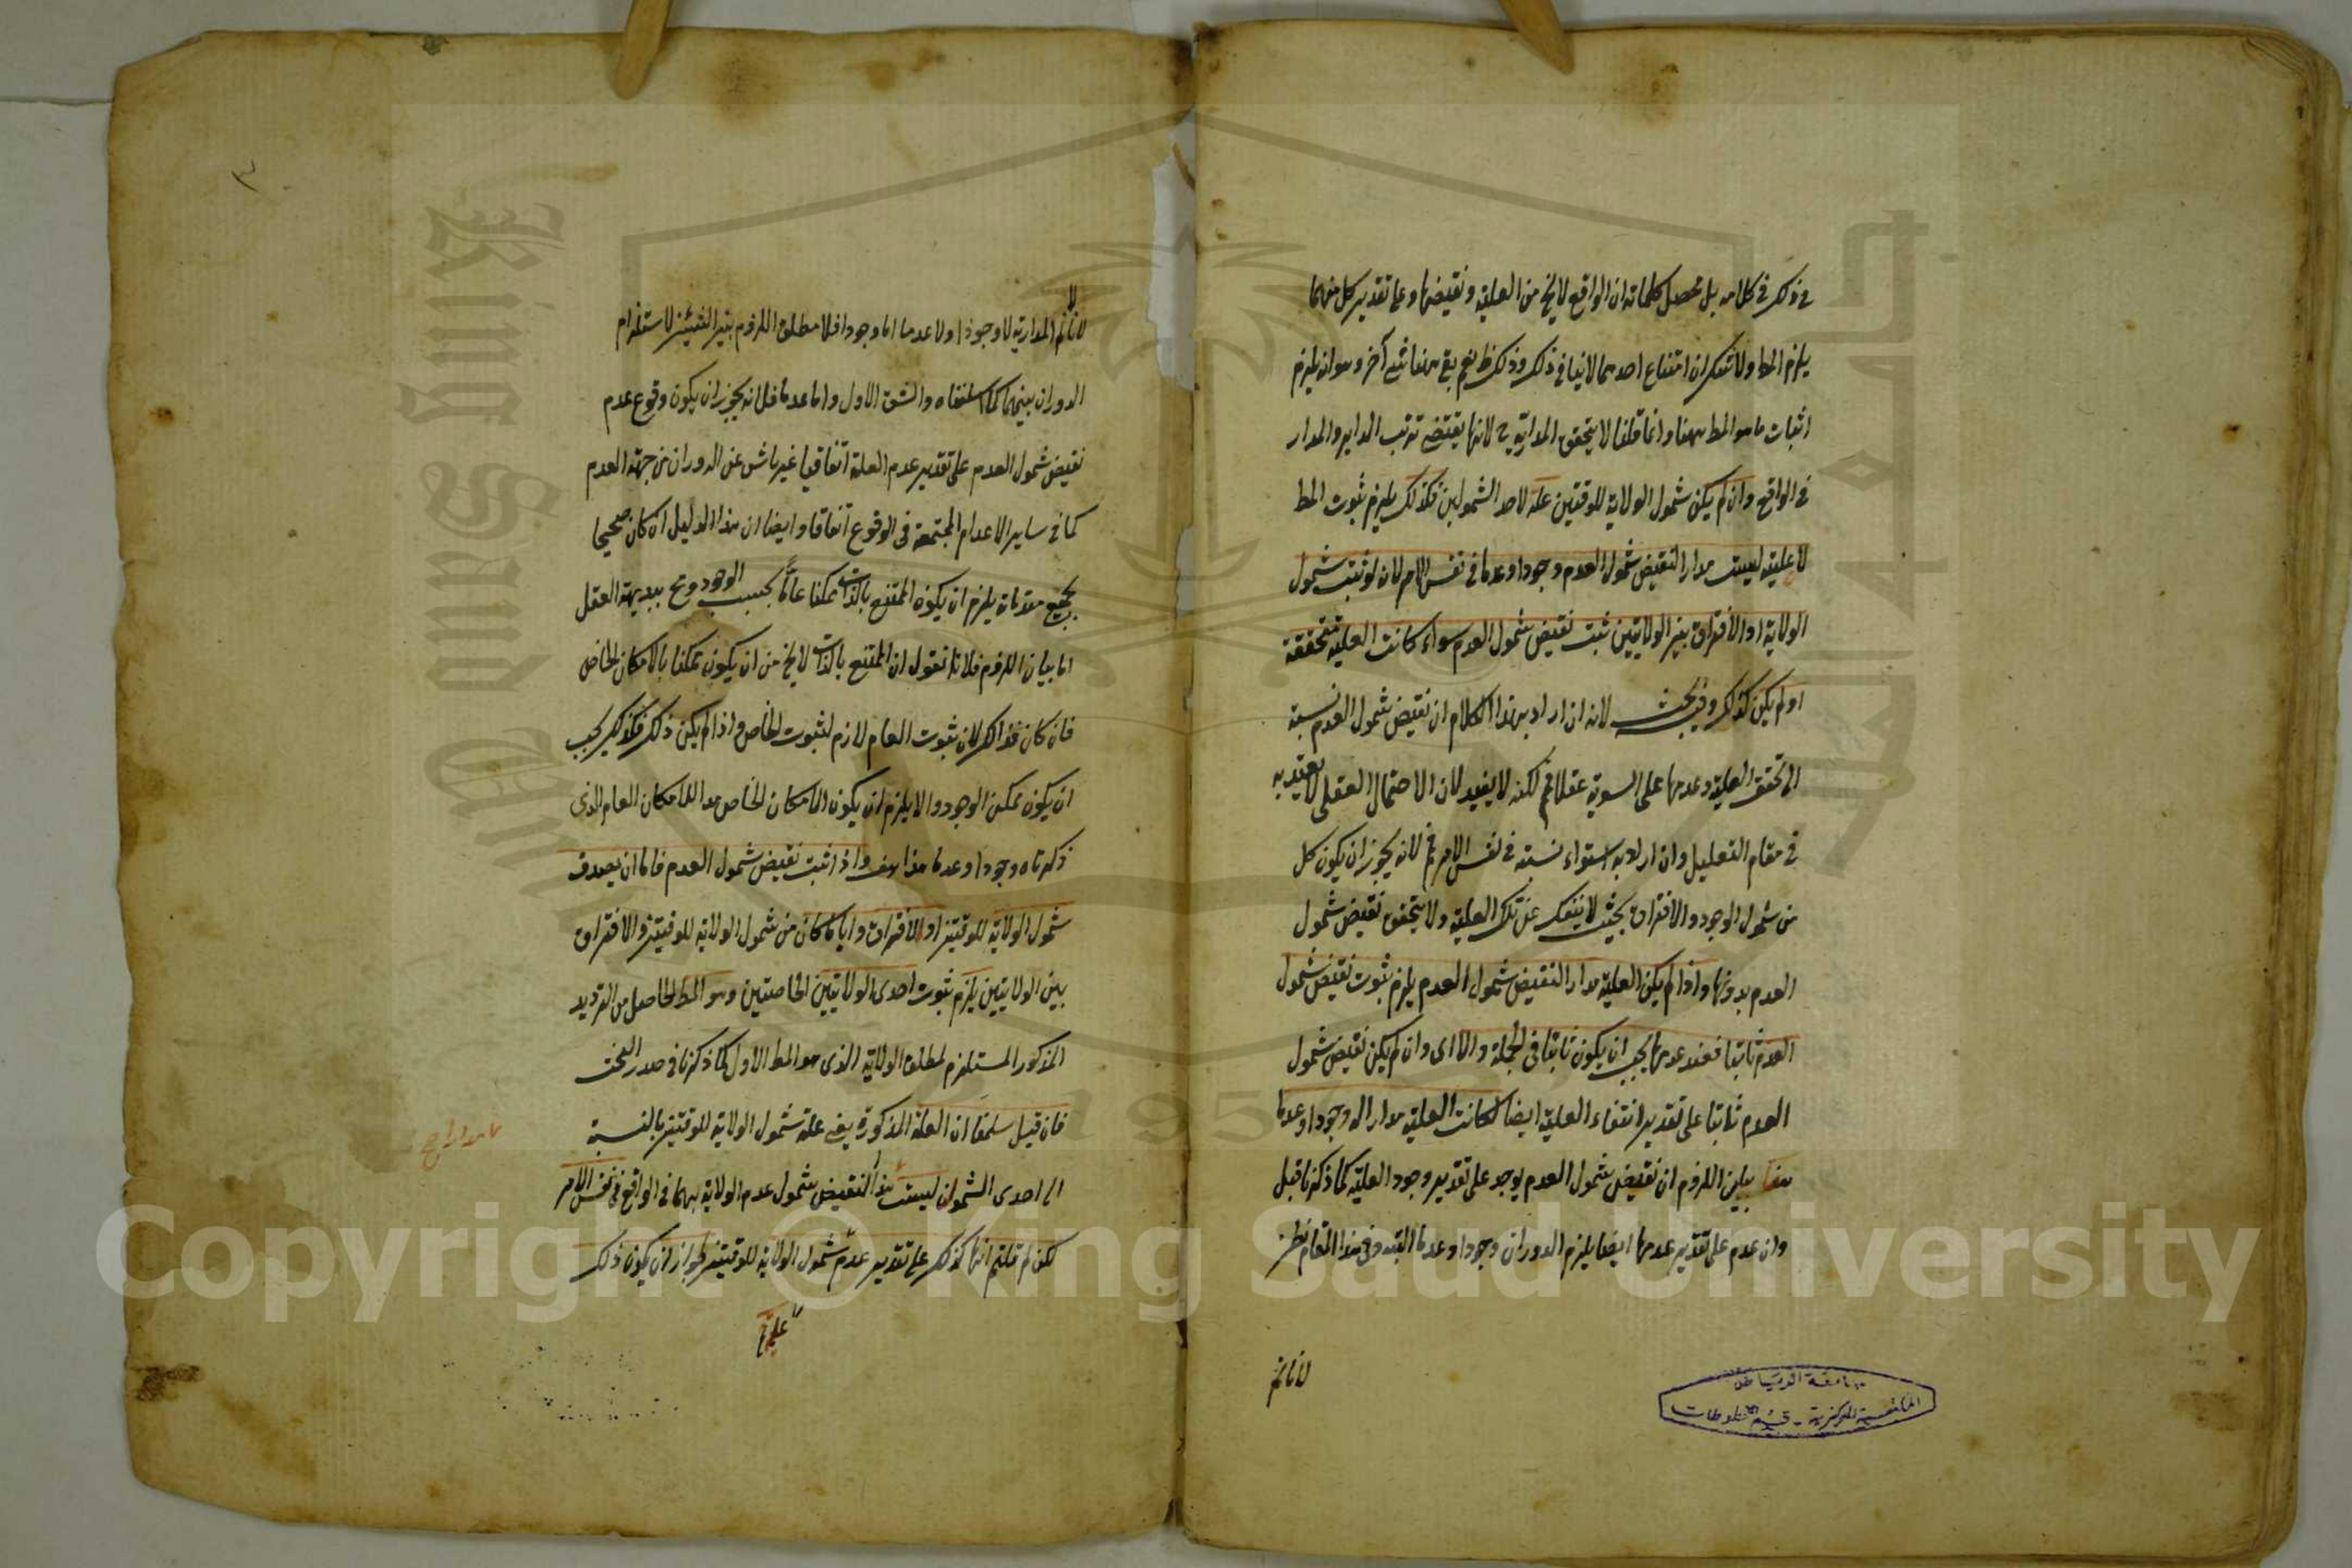 في ذكر في كلامه بل محصل كلماته ان الواقع لايخ من العلية ونقيضها وعلى تقدير كل منهما
يلزم المط ولاشك ان امتناع احدهما لاينافي ذكر وذلك ظ نعم بقي ههنا شئ آخر وهو انه يلزم
اثبات ما هو المط ههنا وانما قلنا لا يتحقق المدارية ح لانها يقتضي ترتب الداير والمدار
في الواقع وان لم يكن شمول الولاية للوقتين علة لاحد الشمولين فكذلك يلزم ثبوت المط
لا علية ليست مدار النقيض شمول العدم وجودا وعدما في نفس الامر لان لو ثبت شمول
الولاية او الافتراق بين الولايتين ثبت نقيض شمول العدم سواء كانت العلية متحققة
او لم يكن كذلك وفيه بحث لانه ان اراد بهذا الكلام ان نقيض شمول العدم نسبة
الى تحقق العلية وعدمها على السوية عقلا فم لكنه لايفيد لان الاحتمال العقلي لايعتد به
في مقام التعليل وان اراد به استواء نسبته في نفس الامر فم لانه يجوز ان يكون كل
من شمول الوجود والافتراق بحيث لاينفك عن تلك العلية ولا يتحقق نقيض شمول
العدم بدونها واذا لم يكن العلية مدار النقيض شمول العدم يلزم ثبوت نقيض شمول
العدم ثابتا فعند عدمها يجب ان يكون ثابتا في الجملة والا اى وان لم يكن نقيض شمول
العدم ثابتا على تقدير انتفاء العلية ايضا لكانت العلية مدارا له وجودا وعدما
هف بيان اللزوم ان نقيض شمول العدم يوجد على تقدير وجود العلية كما ذكرنا قبل
وان عدم على تقدير عدمها ايضا يلزم الدوران وجودا وعدما البتة وفي هذا المقام نظر
لانا نم
جامعة الرياض
المكتبة المركزية - قسم المخطوطات
٣
لانا نم المدارية لا وجودا ولا عدما اما وجودا فلا مطلق اللزوم بين الشيئين لا استلزام
الدوران بينهما كما سلفناه والشق الاول واما عدما فلانه يجوز ان يكون وقوع عدم
نقيض شمول العدم على تقدير عدم العلة اتفاقيا غير ناش عن الدوران من جهة العدم
كما في ساير الاعدام المجتمعة في الوقوع اتفاقا وايضا ان هذا الدليل ان كان صحيحا
بجميع مقدماته يلزم ان يكون الممتنع بالذات ممكنا عاما بحسب الوجود وع ببديهة العقل
اما بيان اللزوم فلانا نقول ان الممتنع بالذات لايخ من ان يكون ممكنا بالامكان الخاص
فان كان فذاك لان ثبوت العام لازم لثبوت الخاص واذا لم يكن ذلك فكذلك يجب
ان يكون ممكن الوجود والا يلزم ان يكون الامكان الخاص مدار للامكان العام الذى
ذكرناه وجودا وعدما هذا هف واذا ثبت نقيض شمول العدم فاما ان يصدق
شمول الولاية للوقتين او الافتراق وايا ما كان من شمول الولاية للوقتين والافتراق
بين الولايتين يلزم ثبوت احدى الولايتين الخاصتين وهو المط الحاصل من الترديد
المذكور المستلزم لمطلق الولاية الذى هو المط الاول كما ذكرنا في صدر البحث
فان قيل سلمنا ان العلة المذكورة يعنى علة شمول الولاية للوقتين بالنسبة
الى احدى الشمولين ليست هذا النقيض شمول عدم الولاية بهما في الواقع في نفس الامر
لكن لم قلتم انها كذلك على تقدير عدم شمول الولاية للوقتين لجواز ان يكون ذلك